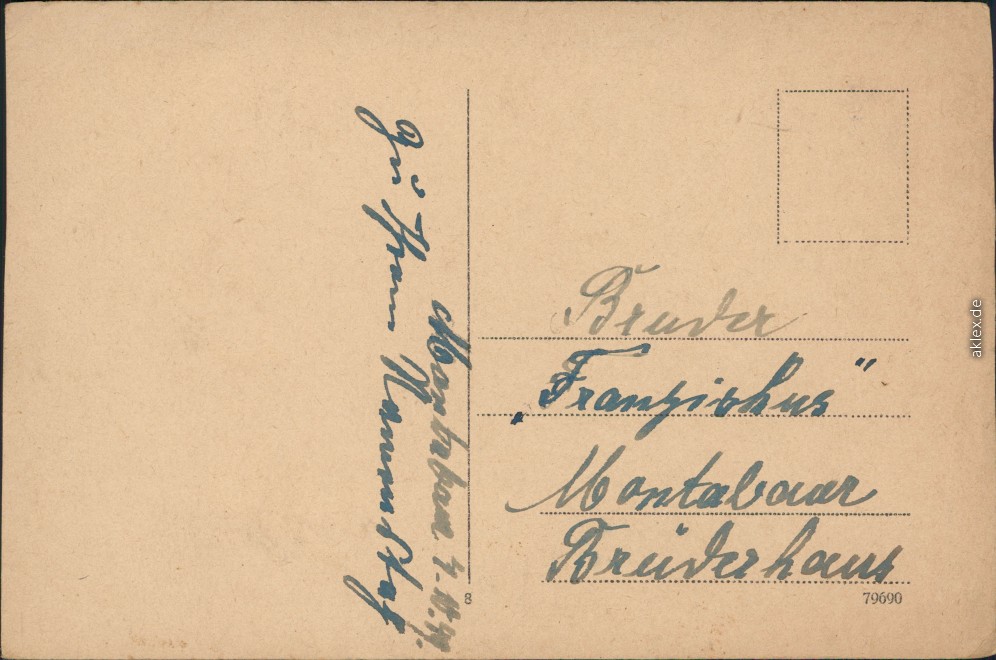 Montabaur 4.10.
Zu Ihrem Namenstag
Bruder
„Franziskus"
Montabaur
Brüderhaus
8
79690
aklex.de